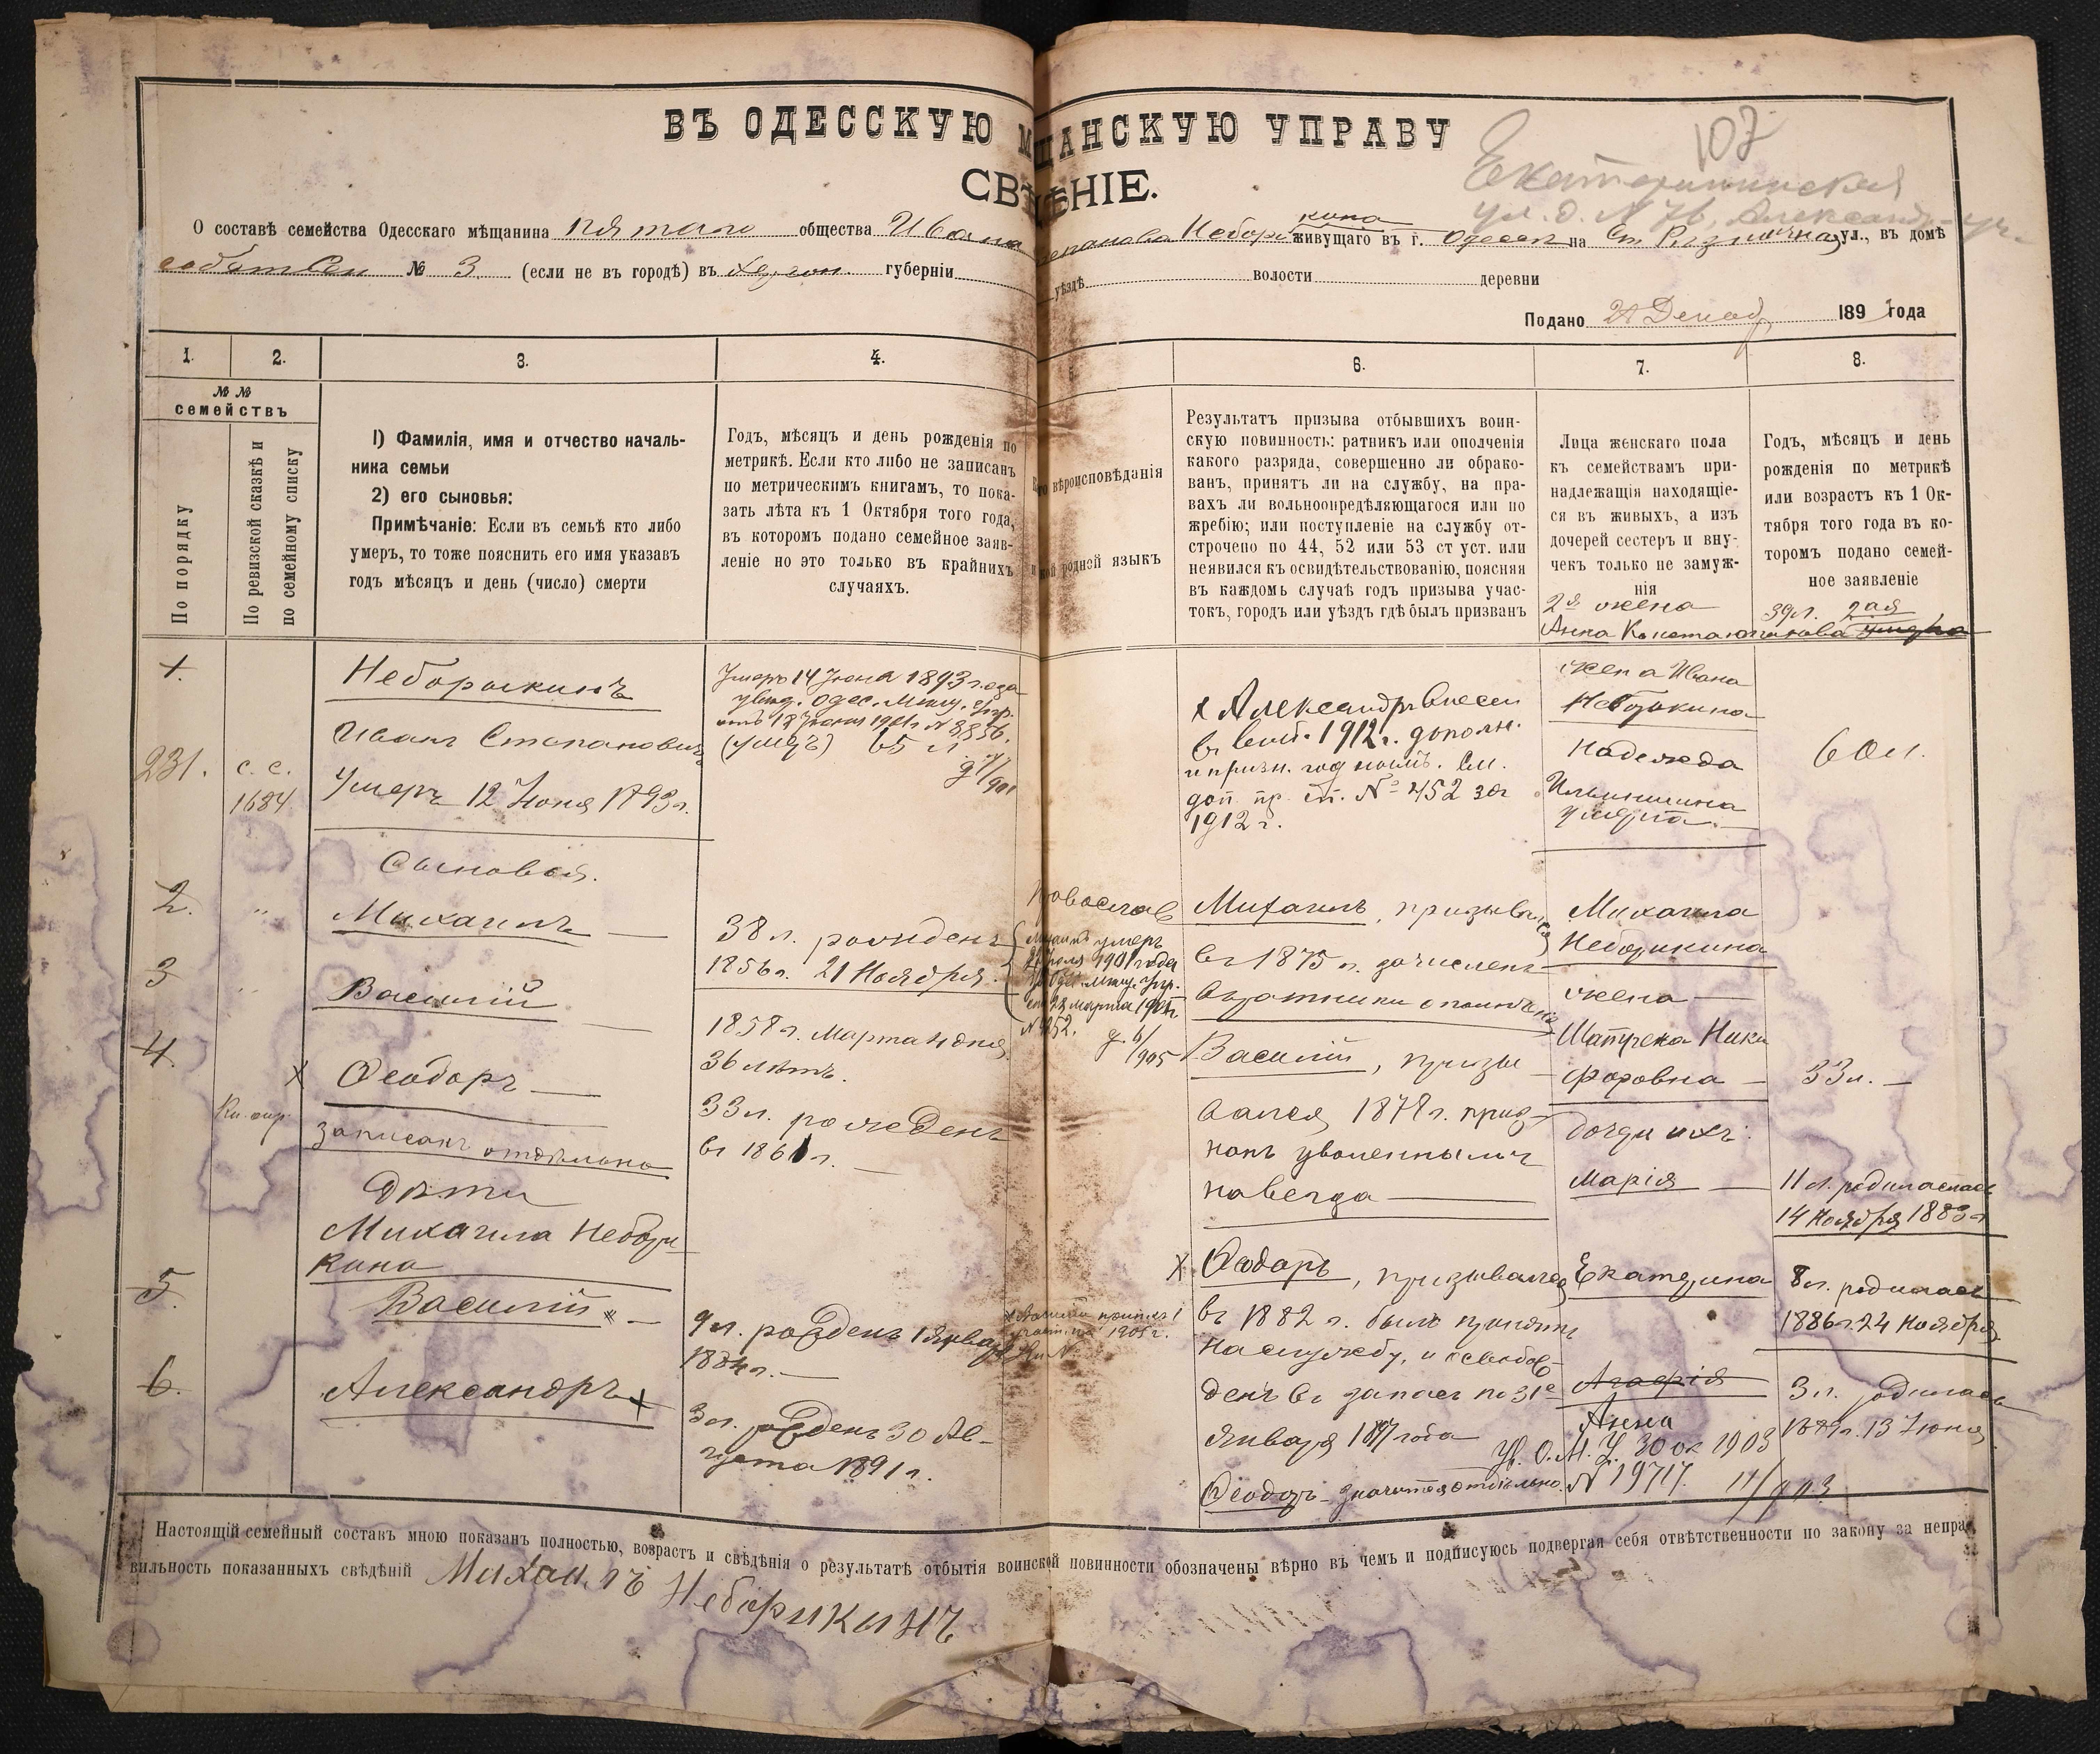 107
Екатерининская
ул. д. № 76, Александр. уч.
ВЪ ОДЕССКУЮ М ЩАНСКУЮ УПРАВУ
СВ ѢНІЕ.
О составѣ семейства Одесскаго мѣщанина пятаго общества Ивана Степанова Неборыкина живущаго въ г. Одессѣ на Ст. Ризничная ул., въ домѣ
собствен № 3. (если не въ городѣ) въ Херсон. губерніи уѣздѣ волости деревни
Подано 21 Декаб. 1891 года
1.
2.
3.
4.
6.
7.
8.
№ №
семействъ
По порядку
По ревизской сказкѣ и
по семейному списку
1) Фамилія, имя и отчество началь-
ника семьи
2) его сыновья:
Примѣчаніе: Если въ семьѣ кто либо
умеръ, то тоже пояснить его имя указавъ
годъ мѣсяцъ и день (число) смерти
Годъ, мѣсяцъ и день рожденія по
метрикѣ. Если кто либо не записанъ
по метрическимъ книгамъ, то пока-
зать лѣта къ 1 Октября того года,
въ которомъ подано семейное заяв-
леніе но это только въ крайнихъ
случаяхъ.
вѣроисповѣданія
родной языкъ
Результатъ призыва отбывшихъ воин-
скую повинность: ратникъ или ополченія
какого разряда, совершенно ли обрако-
ванъ, принятъ ли на службу, на пра-
вахъ ли вольноопредѣляющагося или по
жребію; или поступленіе на службу от-
строчено по 44, 52 или 53 ст уст. или
неявился къ освидѣтельствованію, поясняя
въ каждомъ случаѣ годъ призыва учас-
токъ, городъ или уѣздъ гдѣ былъ призванъ
Лица женскаго пола
къ семействамъ при-
надлежащія находящіе-
ся въ живыхъ, а изъ
дочерей сестеръ и вну-
чекъ только не замуж-
нія
Годъ, мѣсяцъ и день
рожденія по метрикѣ
или возрастъ къ 1 Ок-
тября того года въ ко-
торомъ подано семей-
ное заявленіе
2я жена
Анна Константинова
39 л. 2ая
1.
231.
с. с.
1684
Неборыкинъ
Иванъ Степановичъ
Умеръ 12 Іюня 1893 г.
Умеръ 14 Іюня 1893 года
увѣд. Одес. Мѣщ. Упр.
отъ 18 Іюня 1901 г. № 8856.
(умеръ) 65 л
х Александръ внесен
въ 1912 г. дополн.
и призн. год. См.
доп. пр. сп. № 452 за
1912 г.
жена Ивана
Неборыкина
Надежда
Ильинишна
умерла.
60 л.
Сыновья.
2.
"
Михаилъ
38 л. рожденъ
1856 г. 21 Ноября.
Православ
Михаилъ умеръ
1901 года
Одес. Мѣщ. Упр.
22 марта 1905 г.
№ 4252.
6/905
Михаилъ, призывался
въ 1875 г. зачисленъ
въ ратники ополченія
Михаила
Неборикина
жена
Матрена Ники
форовна
33 л.
3
"
Василій
1858 г. Марта 4 дня
36 лѣтъ.
Василій, призы-
вался 1878 г. приз-
нанъ уволеннымъ
навсегда
дочери ихъ:
Марія
11 л. родилась
14 Ноября 1883 г
4.
х Ѳеодоръ
записанъ отдѣльно
33 л. рожденъ
въ 1861 г.
Дѣти
Михаила Небори-
кина
5.
Василій
9 л. рожденъ 1 Января
1884 г.
х Ѳеодоръ, призывался
въ 1882 г. былъ принятъ
на службу, и освобож-
денъ въ запасъ по 31е
Января 1887 года
Ѳеодоръ значится отдѣльно.
Екатерина
8 л. родилась
1886 г. 24 Ноября
6.
Александръ х
3 л. рожденъ 30 Ав-
густа 1891 г.
Агафія
Анна
3 л. родилась
13 Іюня
Ув. О. М. У. 30 ок 1903
№ 19717. 11/903
Настоящій семейный составъ мною показанъ полностью, возрастъ и свѣдѣнія о результатѣ отбытія воинской повинности обозначены вѣрно въ чемъ и подписуюсь подвергая себя отвѣтственности по закону за непра-
вильность показанныхъ свѣдѣній Михаилъ Неборикинъ